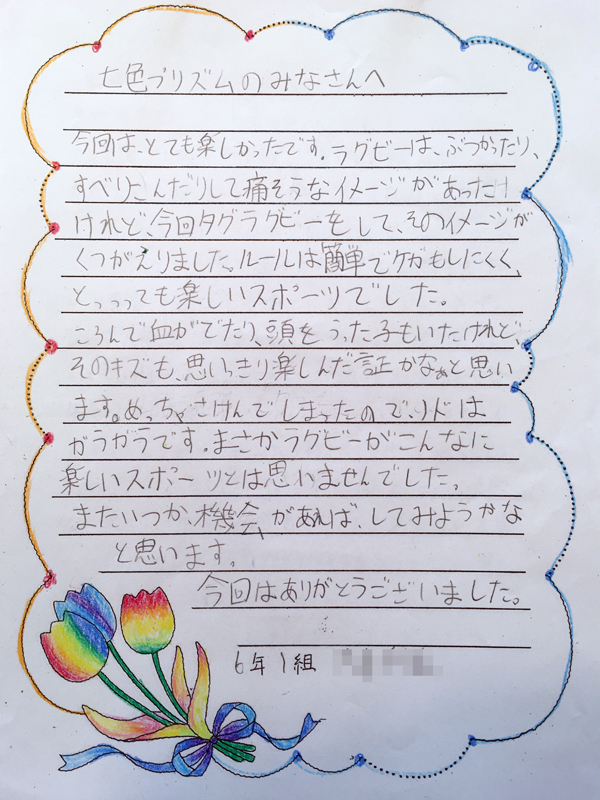 七色プリズムのみなさんへ
今回は、とても楽しかったです。ラグビーは、ぶつかったり、
すべりこんだりして痛そうなイメージがあった
けれど、今回タグラグビーをして、そのイメージが
くつがえりました。ルールは簡単でケガもしにくく、
とっっっても楽しいスポーツでした。
ころんで血がでたり、頭をうった子もいたけれど、
そのキズも、思いっきり楽しんだ証かなぁと思い
ます。めっちゃさけんでしまったので、リドは
ガラガラです。まさかラグビーがこんなに
楽しいスポーツとは思いませんでした。
またいつか、機会があれば、してみようかな
と思います。
今回はありがとうございました。
6年1組